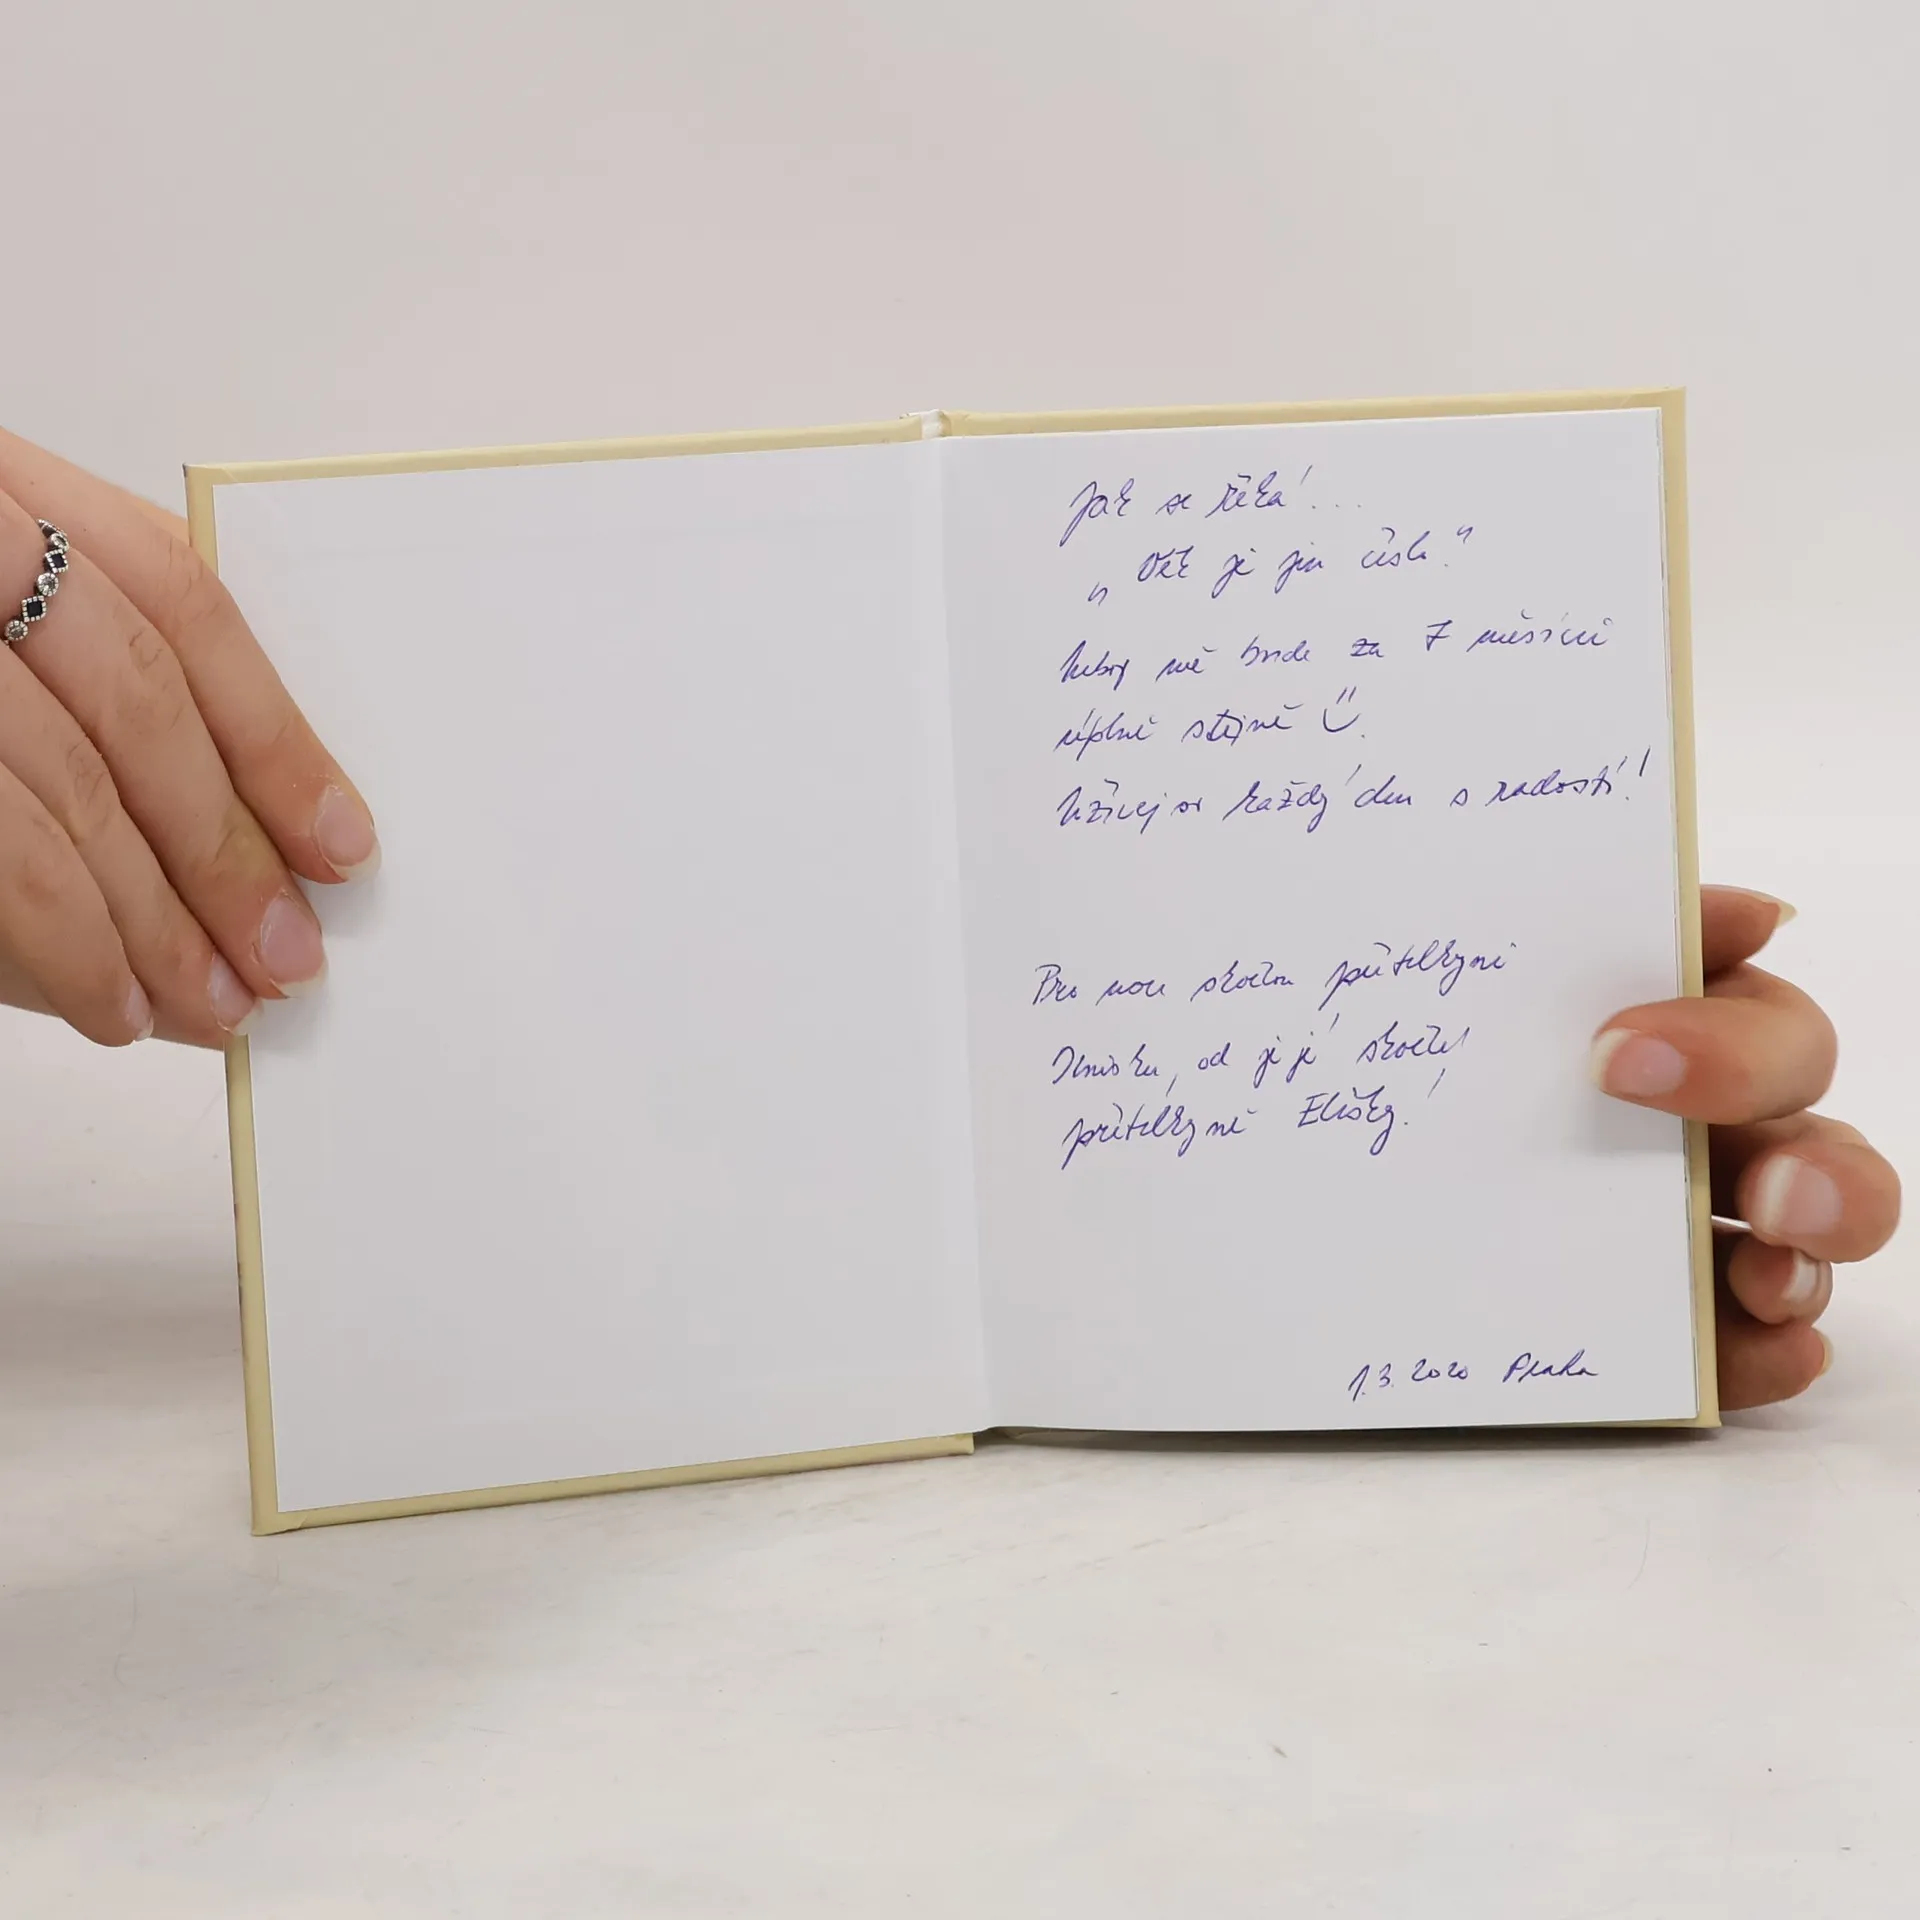 Jak se říká!...
„Věk je jen číslo."
Neboj mě bude za 7 měsíců
úplně stejně Ü.
Užívej si každý den s radostí!
Pro mou skvělou přítelkyni
od její skvělé
přítelkyně Elišky!
1.3.2020 Praha